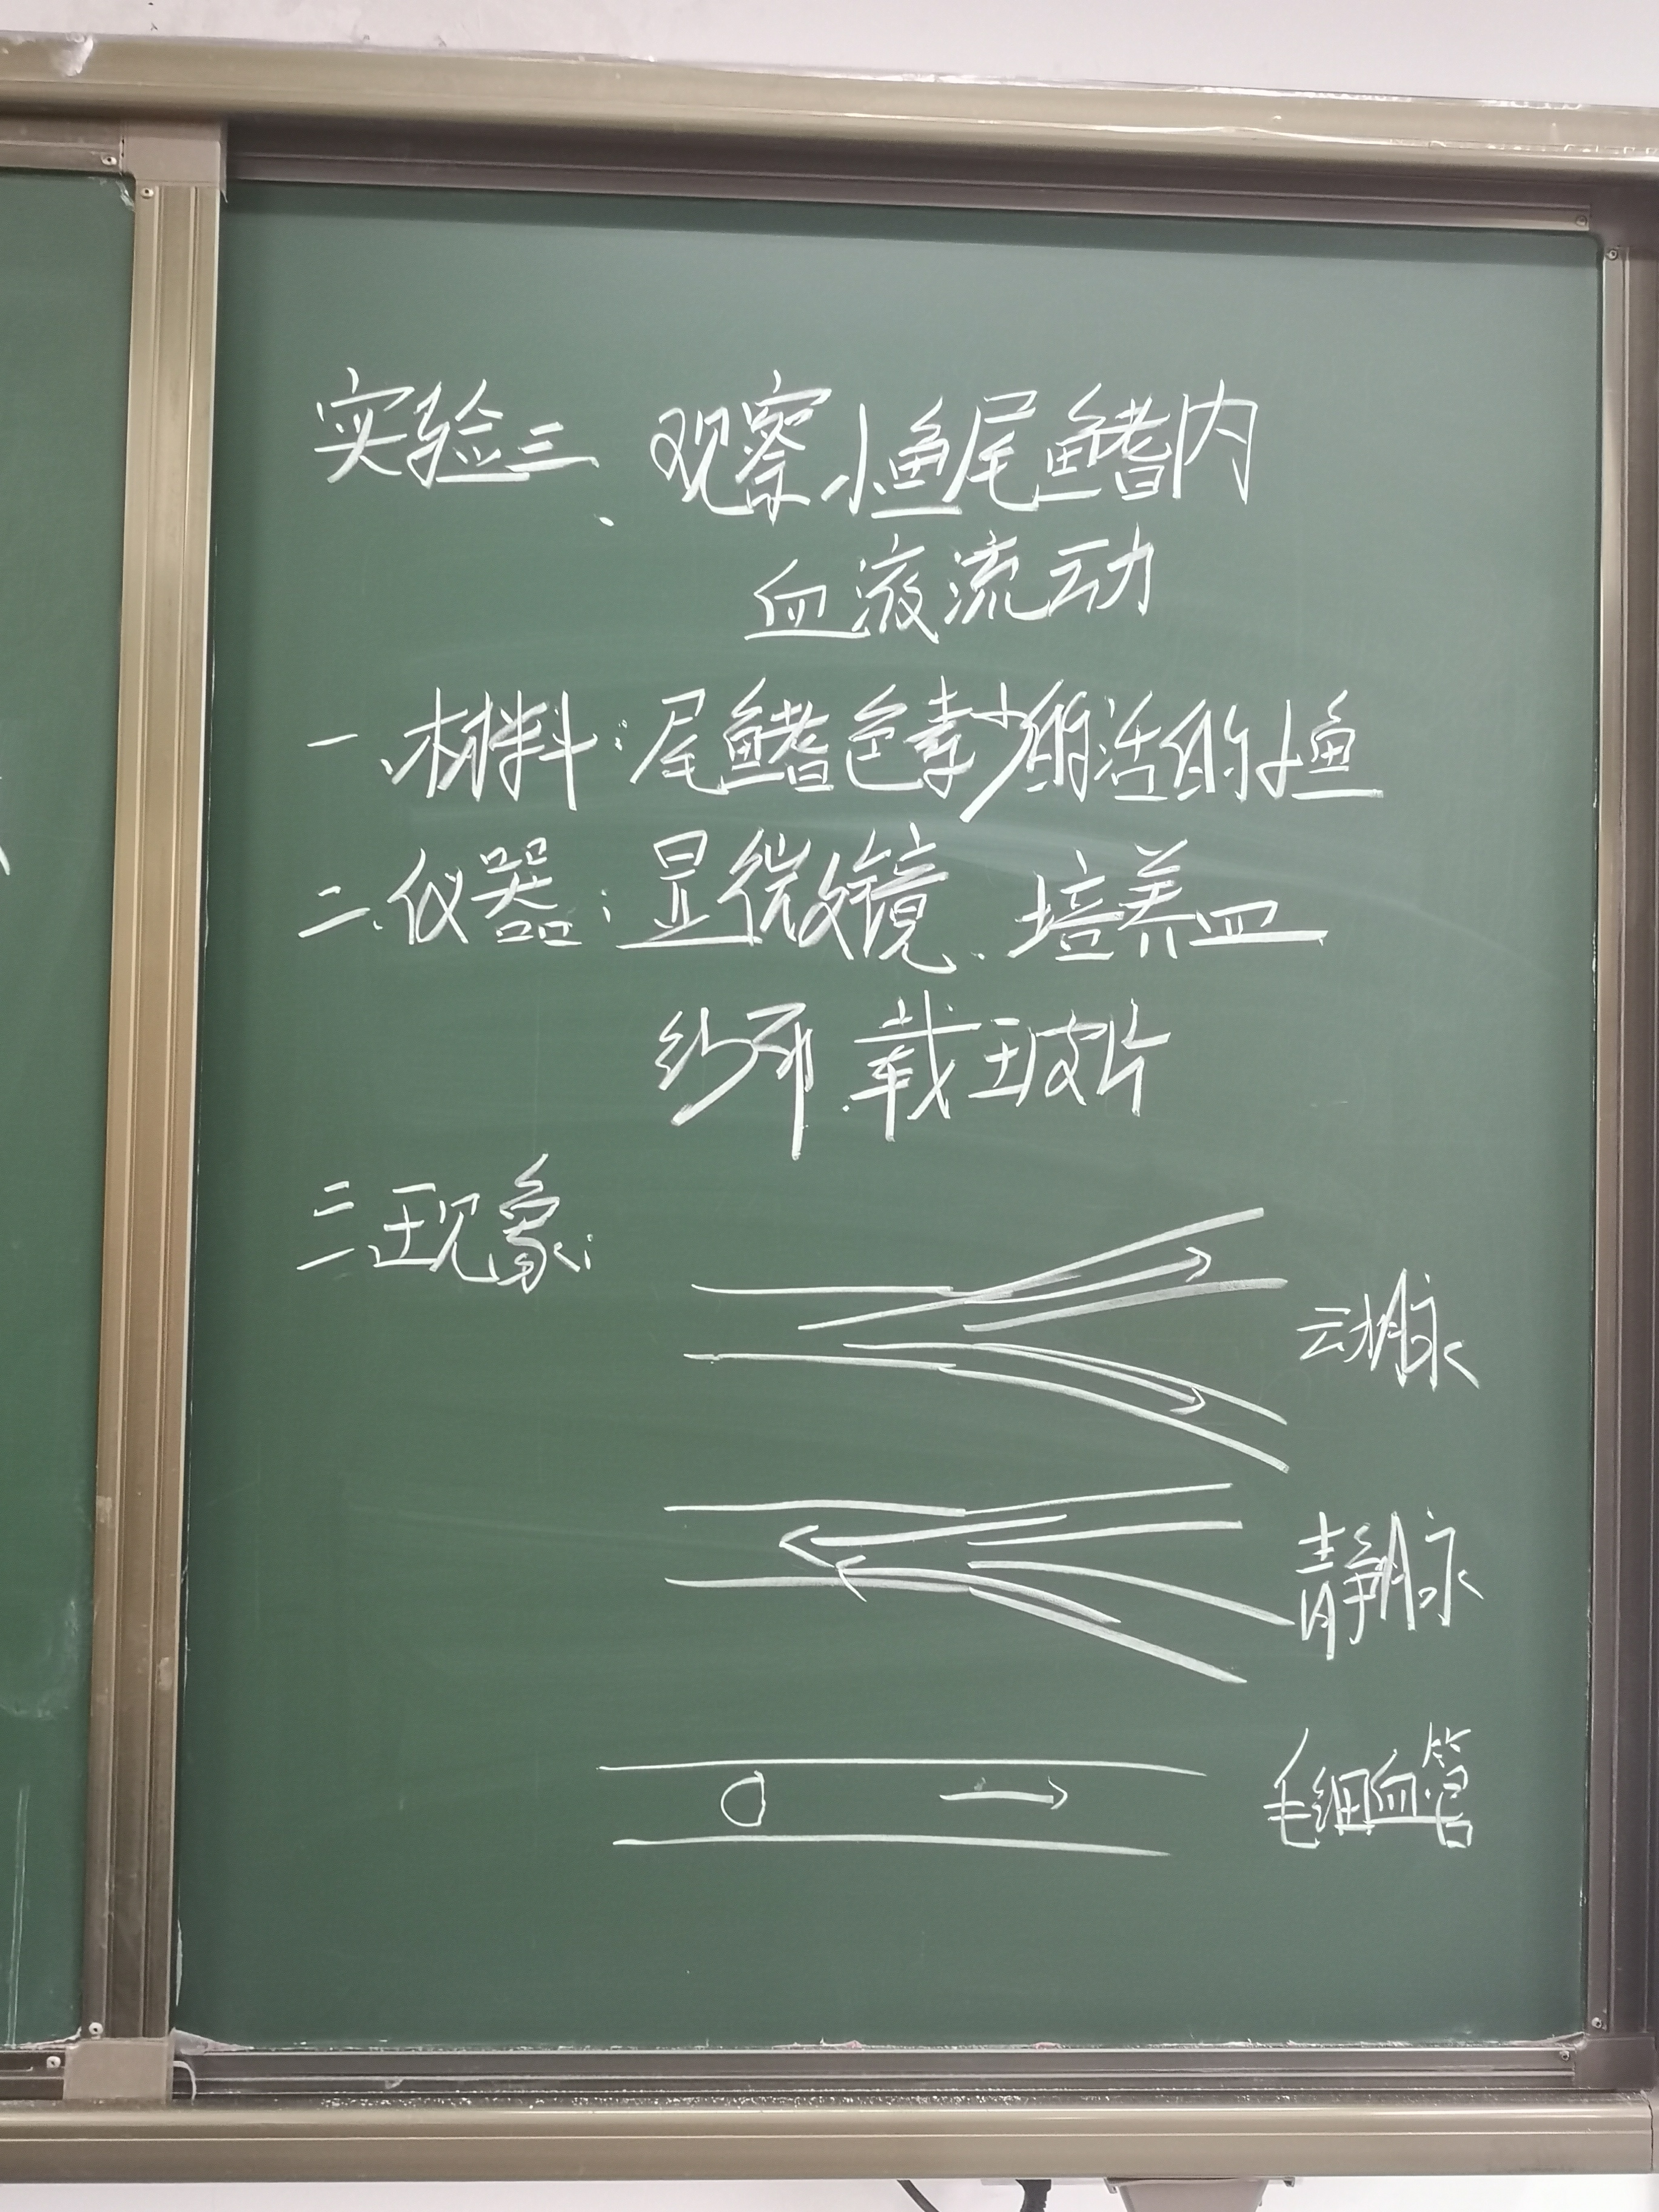 实验三、观察小鱼尾鳍内
血液流动
一、材料:尾鳍色素少的活的小鱼
二、仪器:显微镜、培养皿
纱布、载玻片
三、现象:
动脉
静脉
毛细血管